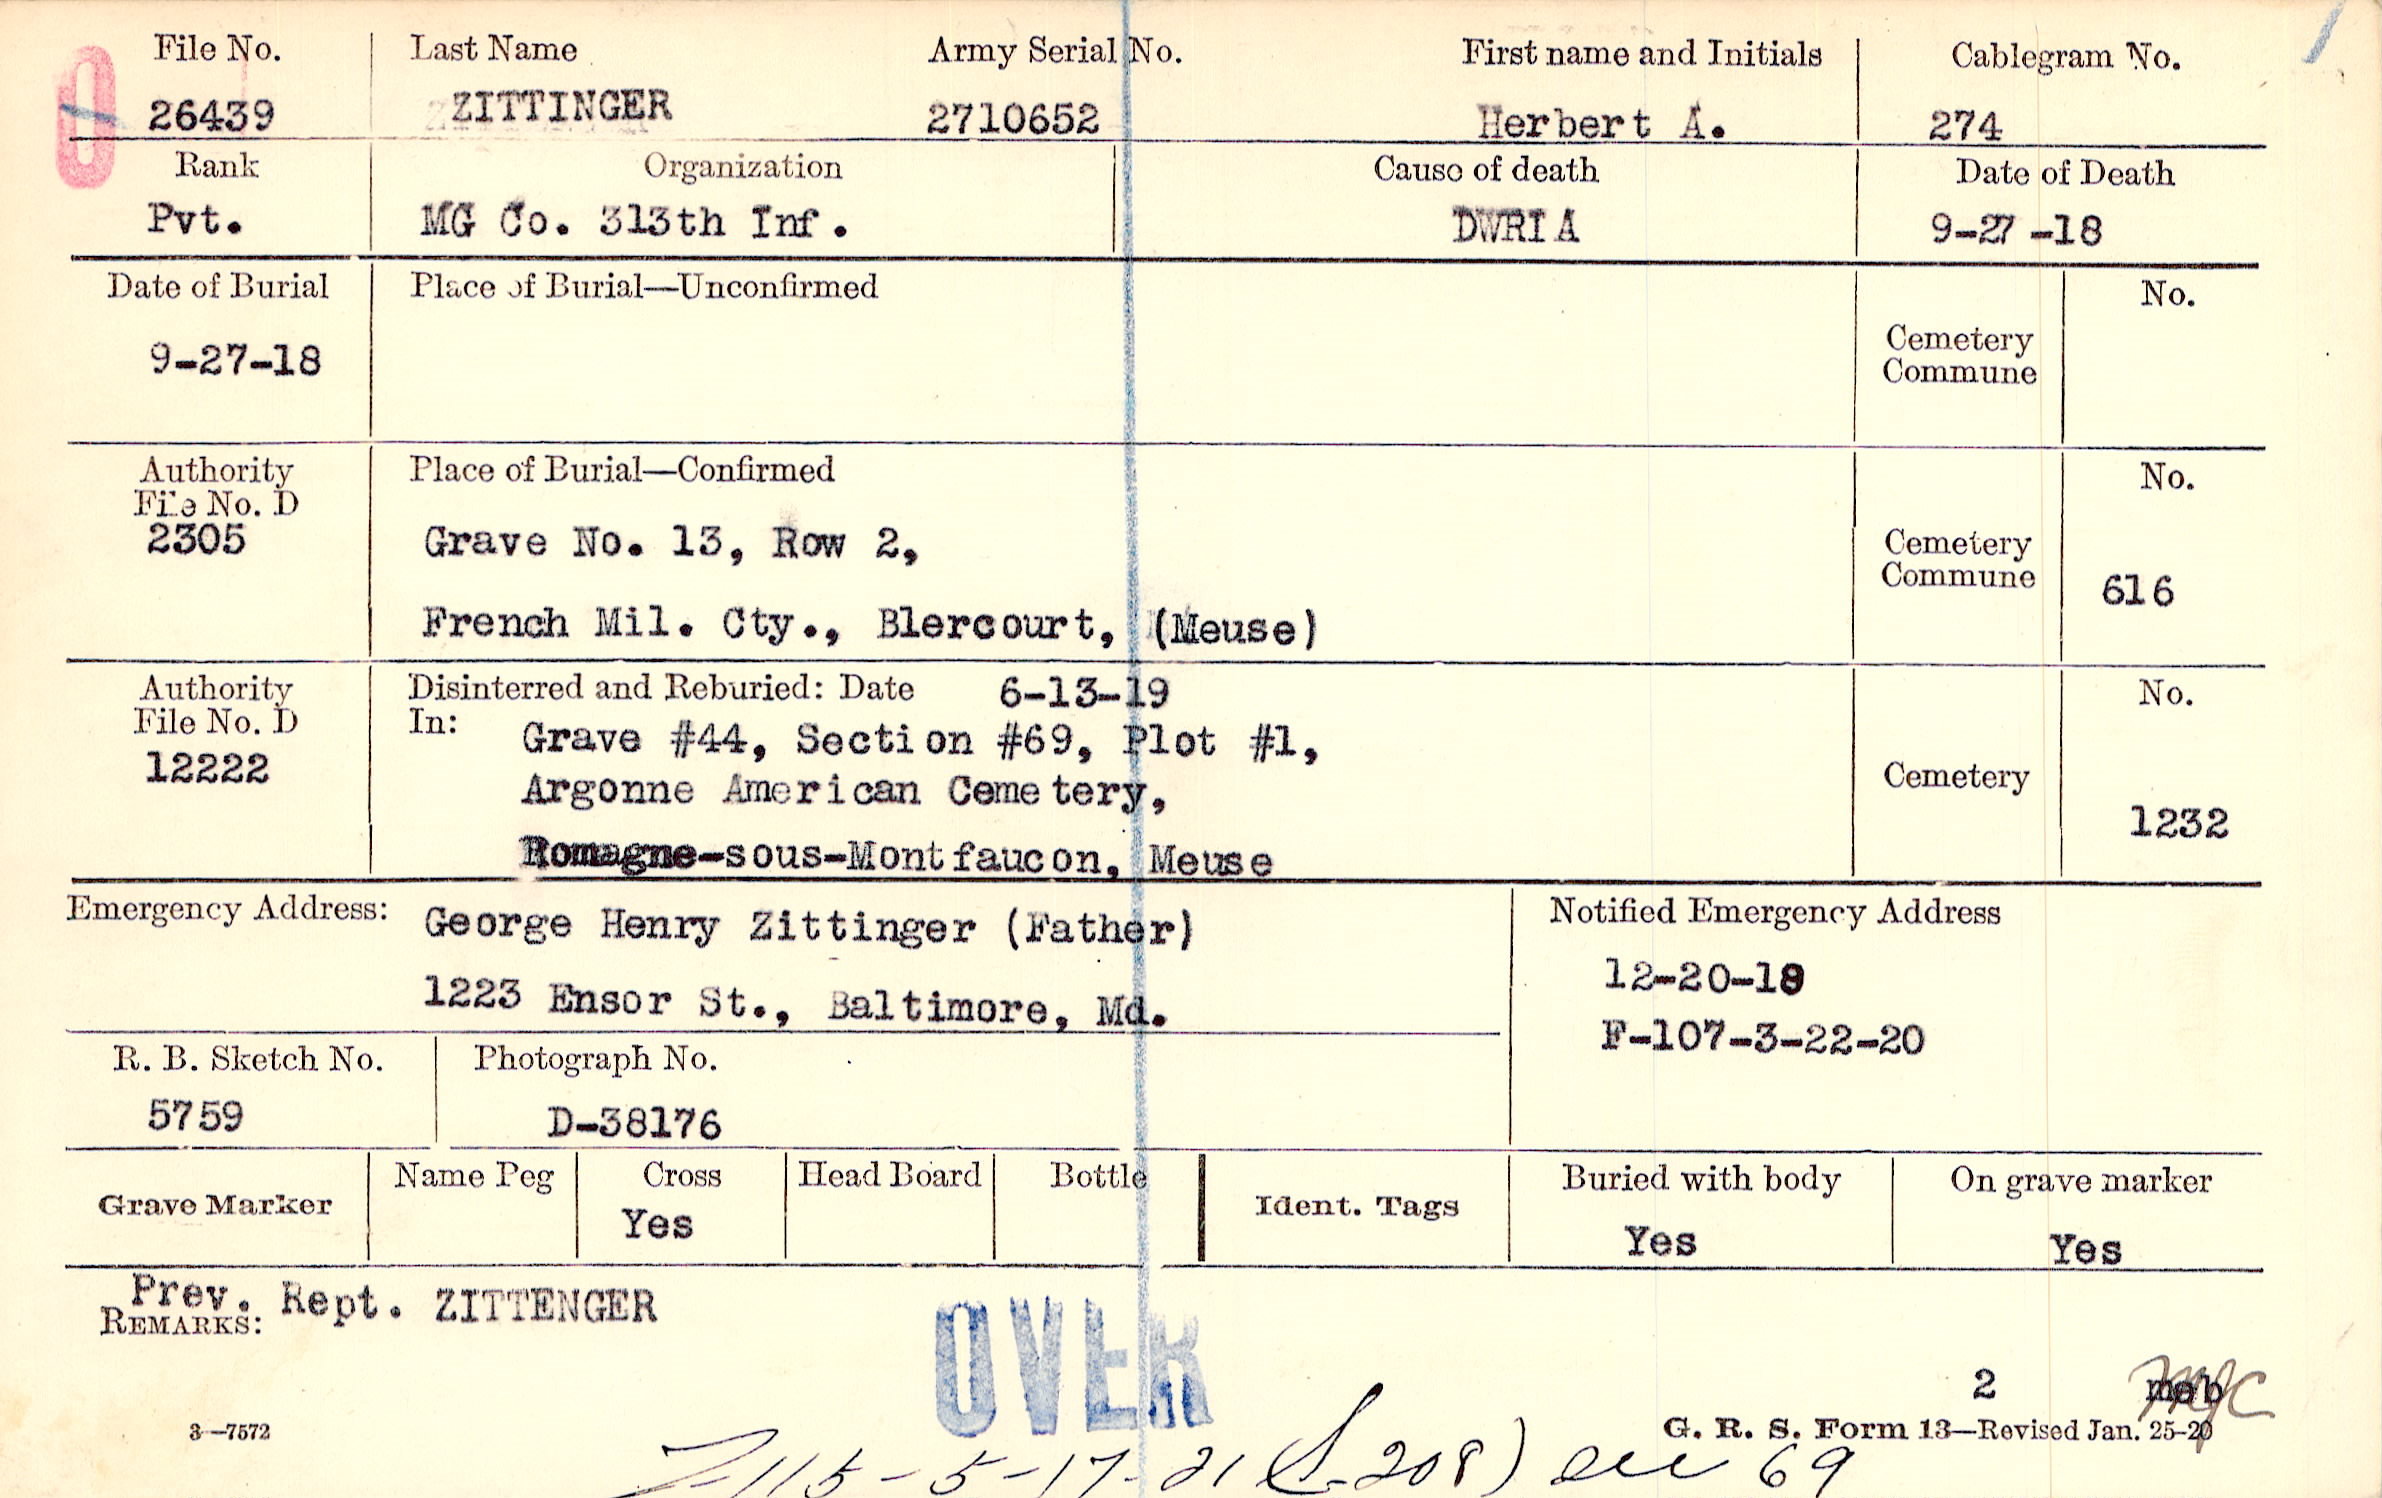 File No. Last Name Army Serial No. First name and Initials Cablegram No.
0 26439 ZITTINGER 2710652 Herbert A. 274
Rank Organization Cause of death Date of Death
Pvt. MG Co. 313th Inf. DWRIA 9-27-18
Date of Burial Place of Burial—Unconfirmed No.
9-27-18 Cemetery
Commune
Authority Place of Burial—Confirmed No.
File No. D
2305 Grave No. 13, Row 2, Cemetery
Commune 616
French Mil. Cty., Blercourt, (Meuse)
Authority Disinterred and Reburied: Date 6-13-19 No.
File No. D In: Grave #44, Section #69, Plot #1,
12222 Argonne American Cemetery, Cemetery
Romagne-sous-Montfaucon, Meuse 1232
Emergency Address: George Henry Zittinger (Father) Notified Emergency Address
1223 Ensor St., Baltimore, Md. 12-20-18
F-107-3-22-20
R. B. Sketch No. Photograph No.
5759 D-38176
Grave Marker Name Peg Cross Head Board Bottle Ident. Tags Buried with body On grave marker
Yes Yes Yes
Prev. Rept. ZITTENGER
REMARKS:
OVER
2 meb
3—7572 G. R. S. Form 13—Revised Jan. 25-20
115-5-17-21 (S-208) 69